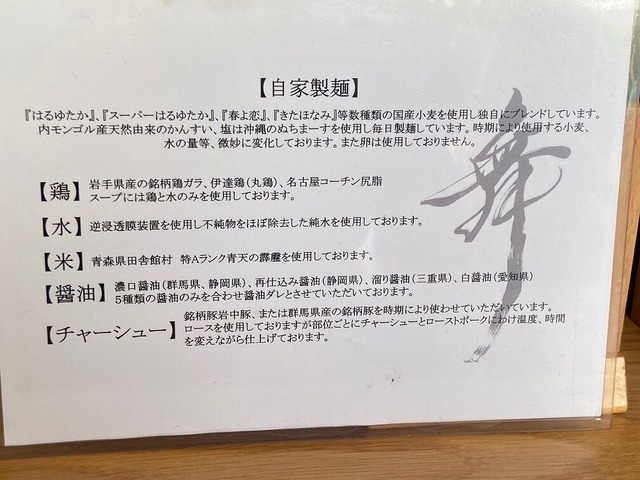 【自家製麺】
『はるゆたか』、『スーパーはるゆたか』、『春よ恋』、『きたほなみ』等数種類の国産小麦を使用し独自にブレンドしています。
内モンゴル産天然由来のかんすい、塩は沖縄のぬちまーすを使用し毎日製麺しています。時期により使用する小麦、
水の量等、微妙に変化しております。また卵は使用しておりません。
【鶏】岩手県産の銘柄鶏ガラ、伊達鶏(丸鶏)、名古屋コーチン尻脂
スープには鶏と水のみを使用しております。
【水】逆浸透膜装置を使用し不純物をほぼ除去した純水を使用しております。
【米】青森県田舎館村 特Aランク青天の霹靂を使用しております。
【醤油】濃口醤油(群馬県、静岡県)、再仕込み醤油(静岡県)、溜り醤油(三重県)、白醤油(愛知県)
5種類の醤油のみを合わせ醤油ダレとさせていただいております。
【チャーシュー】銘柄豚岩中豚、または群馬県産の銘柄豚を時期により使わせていただいています。
ロースを使用しておりますが部位ごとにチャーシューとローストポークにわけ温度、時間
を変えながら仕上げております。
舞